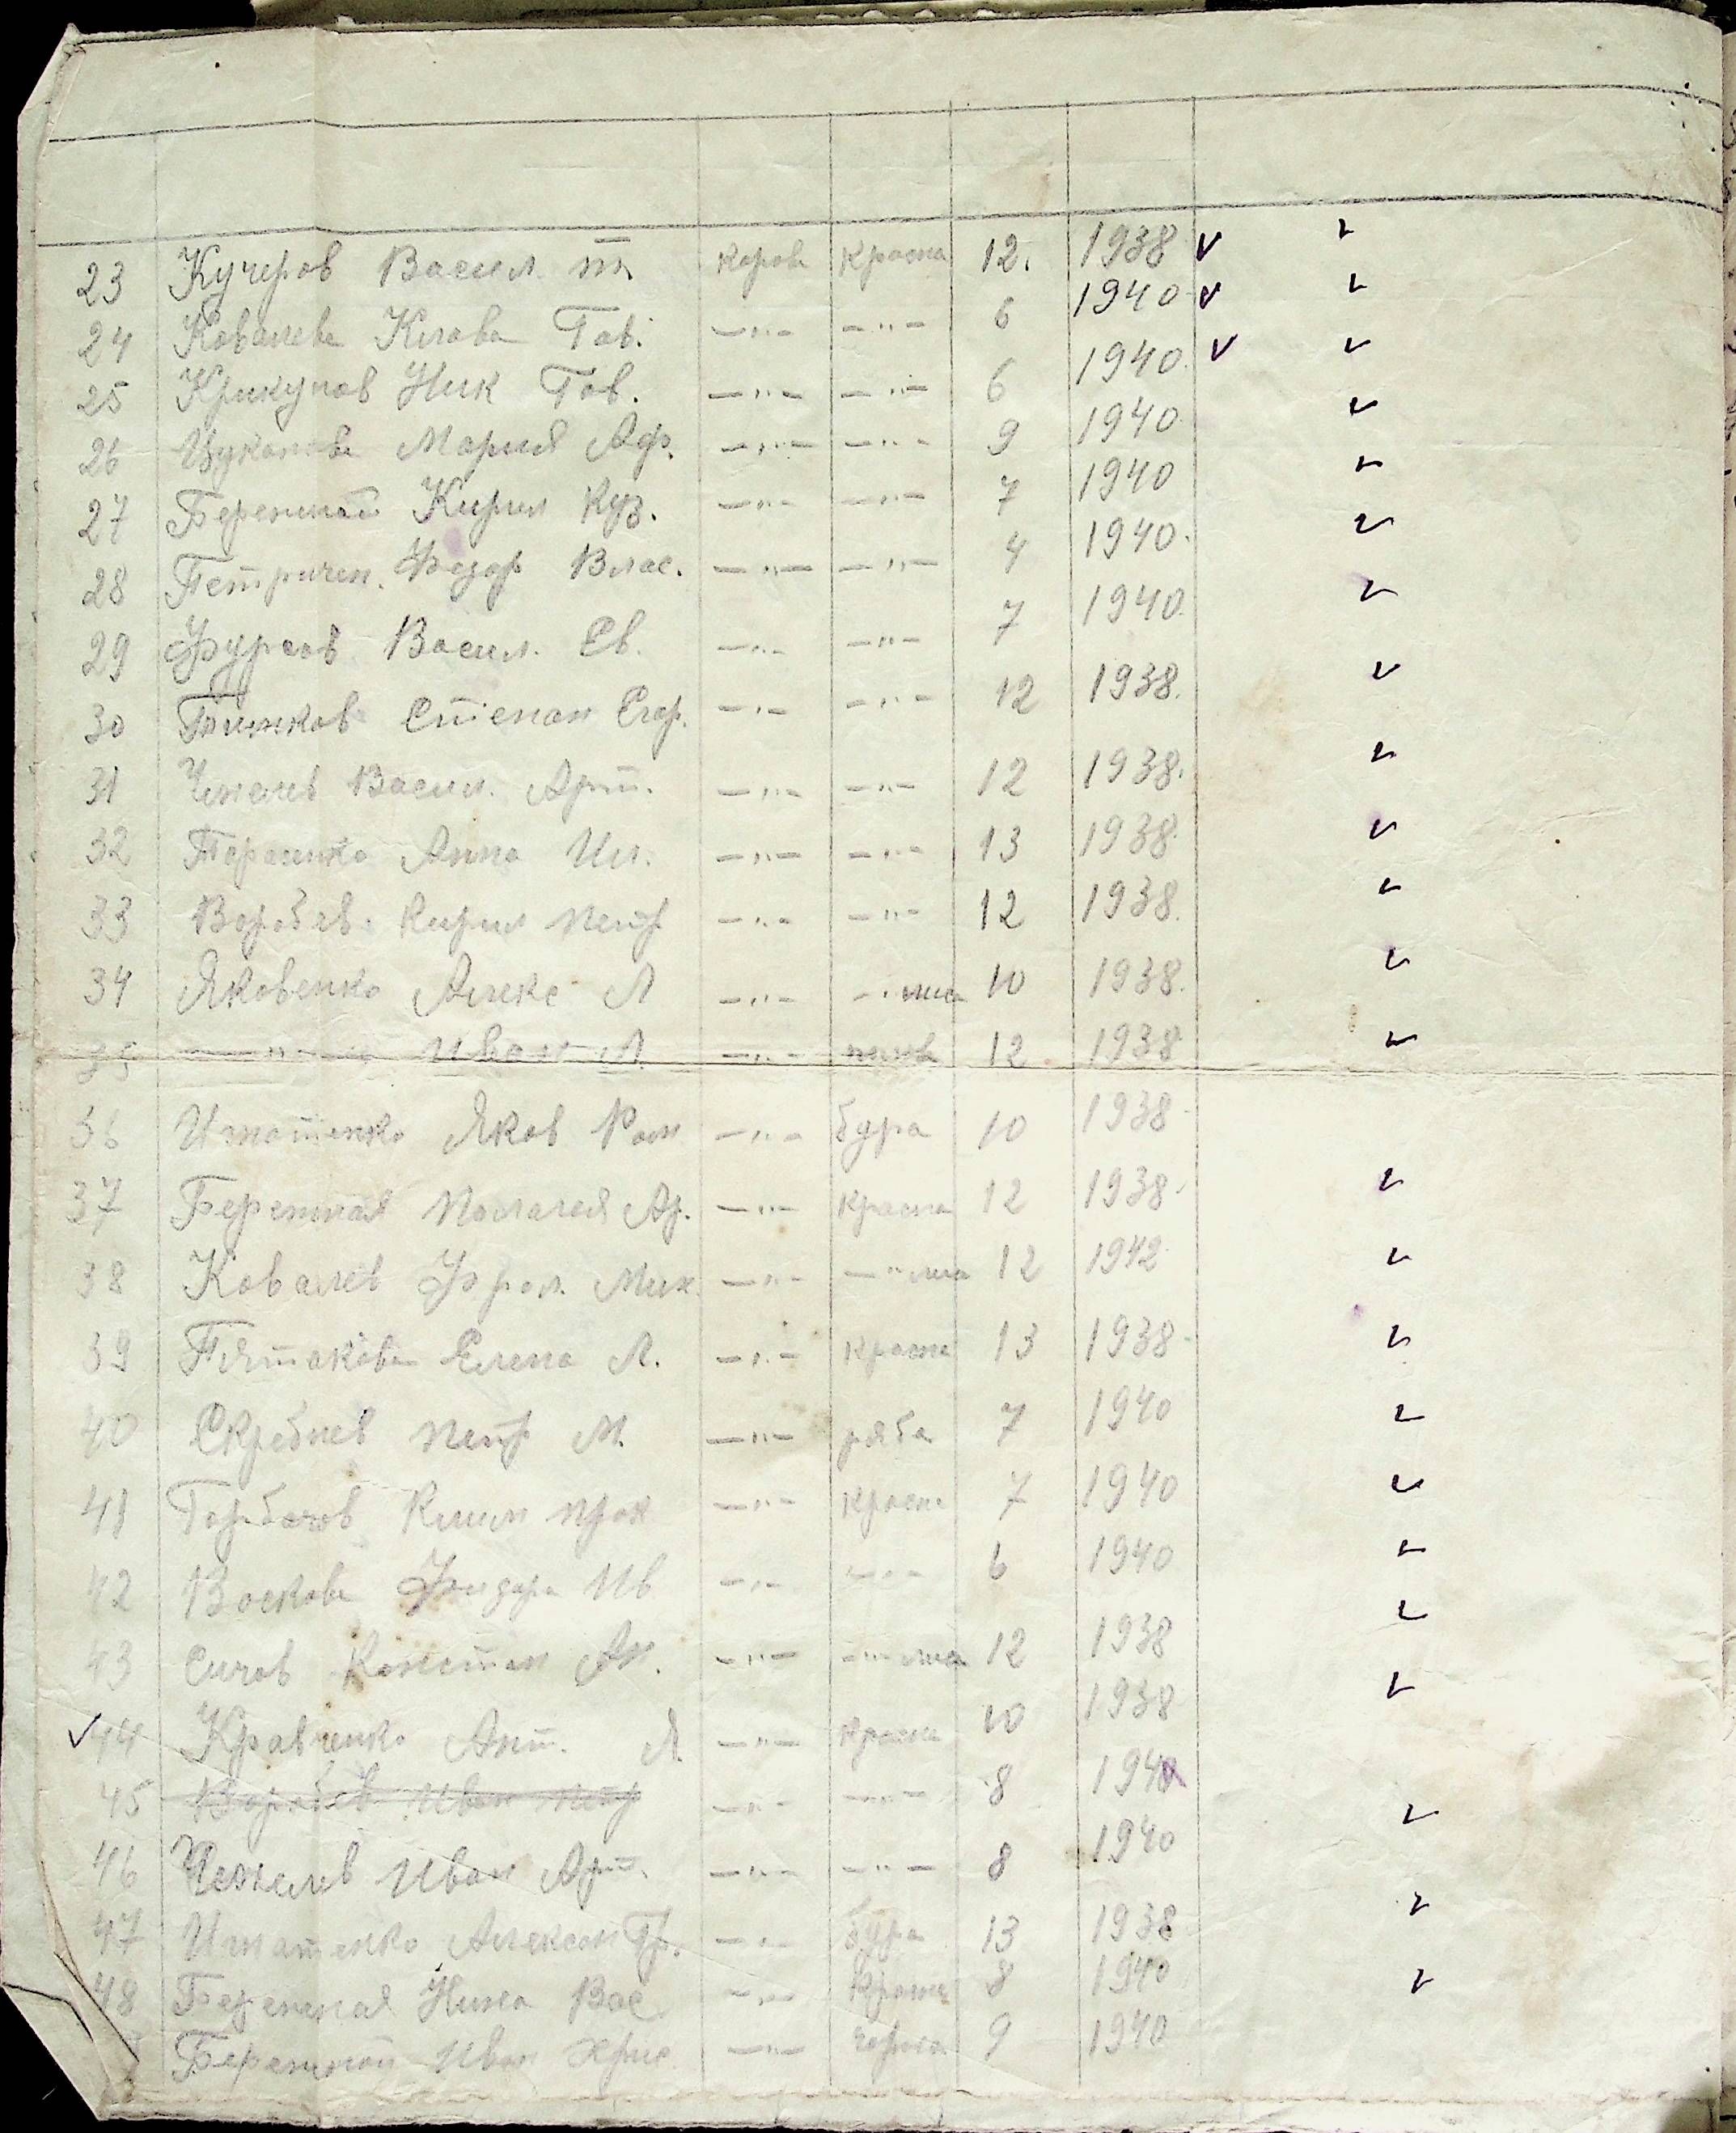 23 Кучеров Васил. Т. корова красна 12. 1938 v v
24 Ковалева Клова Гав. —"— —"— 6 1940 v v
25 Крикунов Ник Гав. —"— —"— 6 1940 v v
26 Цуканова Мария Аф. —"— —"— 9 1940 v
27 Бережной Кирил Куз. —"— —"— 7 1940 v
28 Петричен. Федор Влас. —"— —"— 4 1940. v
29 Фурсов Васил. Ев. —"— —"— 7 1940. v
30 Степан Егор. —"— —"— 12 1938. v
31 Васил. Арт. —"— —"— 12 1938. v
32 Анна Ил. —"— —"— 13 1938. v
33 Воробев Кирил Петр —"— —"— 12 1938. v
34 Яковенко Алекс Л —"— 10 1938. v
35 —"— Иван Л —"— 12 1938 v
36 Игнатенко Яков Ром —"— бура 10 1938
37 Бережная Ар. —"— красна 12 1938 v
38 Ковалев Фрол. Мих. —"— 12 1942 v
39 Пятакова Елена Л. —"— красна 13 1938 v
40 Скребнев Петр М. —"— ряба 7 1940 v
41 Горбачов Клим Прок —"— красн. 7 1940 v
42 Ив —"— —"— 6 1940 v
43 Сичов Констан Ан. —"— 12 1938 v
v 44 Кравченко Ант. Я. —"— красна 10 1938 v
45 Воробев Иван Петр —"— —"— 8 1940
46 Чепелев Иван Арт. —"— —"— 8 1940 v
47 Игнатенко Алексан Гр. —"— бура 13 1938 v
48 Бережная Нина Вас —"— красна 8 1940 v
Бережной Иван Хрис —"— чорна 9 1940